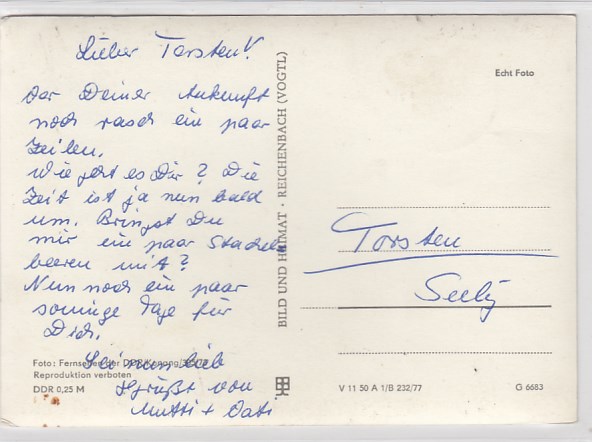 Lieber Torsten!
Vor Deiner Ankunft
noch rasch ein paar
Zeilen.
Wie geht es Dir? Die
Zeit ist ja nun bald
um. Bringst Du
mir ein paar Stachel
beeren mit?
Nun noch ein paar
sonnige Tage für
Dich.
Sei nun lieb
gegrüßt von
Mutti + Vati
Foto: Fernsehen der DDR
Reproduktion verboten
DDR 0,25 M
BILD UND HEIMAT · REICHENBACH (VOGTL)
Echt Foto
Torsten
Seelig
V 11 50 A 1/B 232/77
G 6683